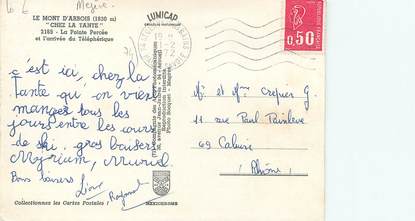 Megève
LE MONT D'ARBOIS (1830 m)
"CHEZ LA TANTE"
2185 - La Pointe Percée
et l'arrivée du Téléphérique
LUMICAP
c'est ici, chez la
Tante qu'on vient
manger tous les
jours entre les cours
de ski, gros baisers
Myriam, Muriel.
Bons baisers
Raymond
Collectionnez les Cartes Postales !
MEXICHROME
Reproduction Interdite
0,50
Mr et Mme Crepier G
11 rue Paul Painlevé
69 Caluire
(Rhône)